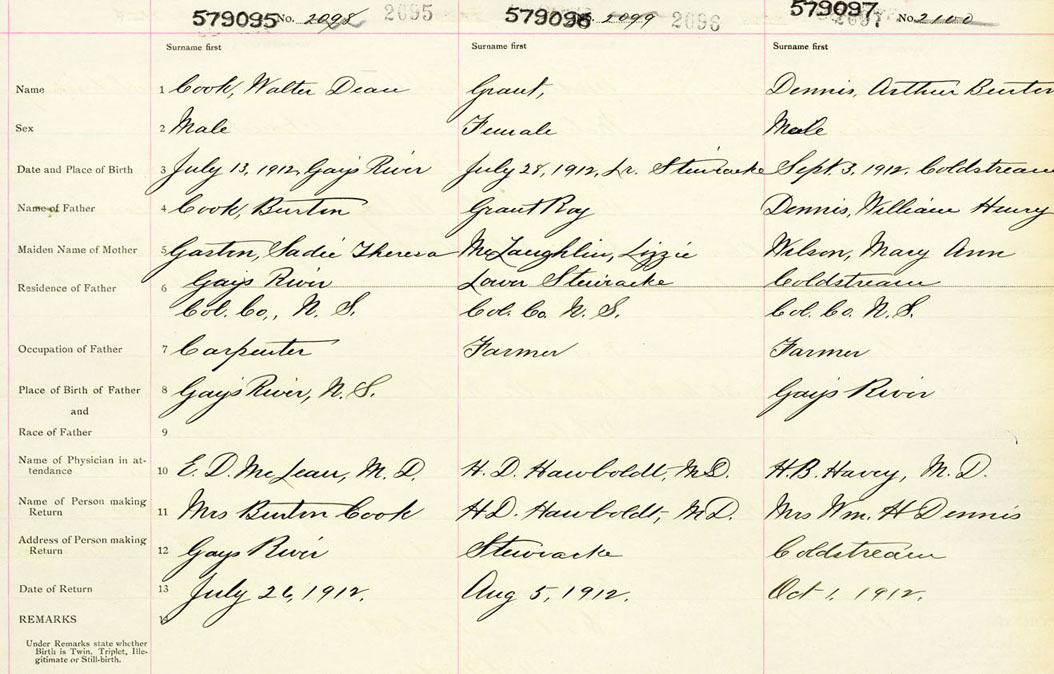 579095 No. 2098 2095 579096 2099 2096 579097 2097 No. 2100
Surname first Surname first Surname first
Name 1 Cook, Walter Dean Grant, Dennis, Arthur Burton
Sex 2 Male Female Male
Date and Place of Birth 3 July 13, 1912, Gays River July 28, 1912, Lr. Stewiacke Sept. 3, 1912, Coldstream
Name of Father 4 Cook, Burton Grant Roy Dennis, William Henry
Maiden Name of Mother 5 Gaston, Sadie Theresa McLaughlin, Lizzie Wilson, Mary Ann
Residence of Father 6 Gays River Lower Stewiacke Coldstream
Col. Co., N. S. Col. Co. N. S. Col. Co. N. S.
Occupation of Father 7 Carpenter Farmer Farmer
Place of Birth of Father 8 Gays River, N. S. Gays River
and
Race of Father 9
Name of Physician in at-
tendance 10 E. D. McLean, M. D. H. D. Hawboldt, M.D. H.B. Havey, M. D.
Name of Person making
Return 11 Mrs Burton Cook H.D. Hawboldt, M.D. Mrs Wm. H Dennis
Address of Person making
Return 12 Gays River Stewiacke Coldstream
Date of Return 13 July 26, 1912. Aug 5, 1912. Oct 1, 1912.
REMARKS
Under Remarks state whether
Birth is Twin, Triplet, Ille-
gitimate or Still-birth.